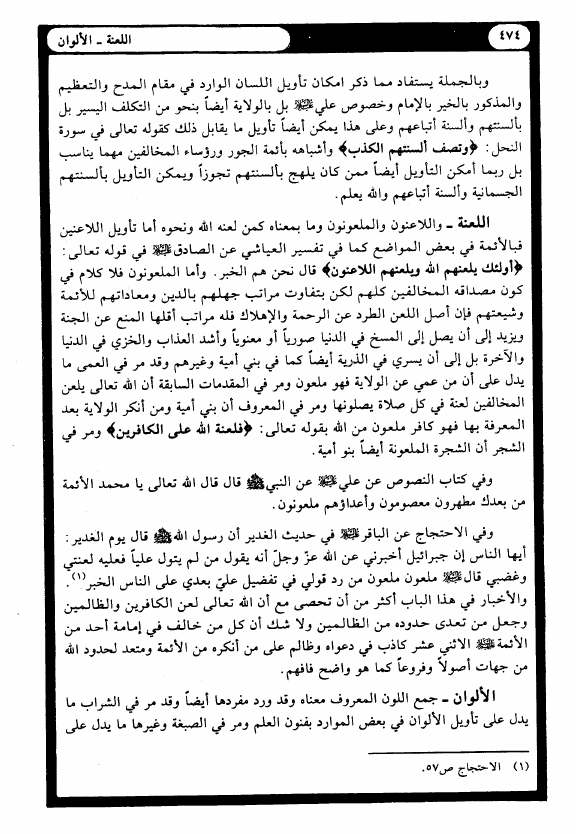 ٤٧٤
اللعنة ـ الألوان
وبالجملة يستفاد مما ذكر امكان تأويل اللسان الوارد في مقام المدح والتعظيم
والمذكور بالخير بالإمام وخصوص علي عليه السلام بل بالولاية أيضاً بنحو من التكلف اليسير بل
بألسنتهم وألسنة أتباعهم وعلى هذا يمكن أيضاً تأويل ما يقابل ذلك كقوله تعالى في سورة
النحل: ﴿وتصف ألسنتهم الكذب﴾ وأشباهه بأئمة الجور ورؤساء المخالفين مهما يناسب
بل ربما أمكن التأويل أيضاً ممن كان يلهج بألسنتهم تجوزاً ويمكن التأويل بألسنتهم
الجسمانية وألسنة أتباعهم والله يعلم.
اللعنة ـ واللاعنون والملعونون وما بمعناه كمن لعنه الله ونحوه أما تأويل اللاعنين
فبالأئمة في بعض المواضع كما في تفسير العياشي عن الصادق عليه السلام في قوله تعالى:
﴿أولئك يلعنهم الله ويلعنهم اللاعنون﴾ قال نحن هم الخبر. وأما الملعونون فلا كلام في
كون مصداقه المخالفين كلهم لكن بتفاوت مراتب جهلهم بالدين ومعاداتهم للأئمة
وشيعتهم فإن أصل اللعن الطرد عن الرحمة والإهلاك فله مراتب أقلها المنع عن الجنة
ويزيد إلى أن يصل إلى المسخ في الدنيا صورياً أو معنوياً وأشد العذاب والخزي في الدنيا
والآخرة بل إلى أن يسري في الذرية أيضاً كما في بني أمية وغيرهم وقد مر في العمى ما
يدل على أن من عمي عن الولاية فهو ملعون ومر في المقدمات السابقة أن الله تعالى يلعن
المخالفين لعنة في كل صلاة يصلونها ومر في المعروف أن بني أمية ومن أنكر الولاية بعد
المعرفة بها فهو كافر ملعون من الله بقوله تعالى: ﴿فلعنة الله على الكافرين﴾ ومر في
الشجر أن الشجرة الملعونة أيضاً بنو أمية.
وفي كتاب النصوص عن علي عليه السلام عن النبي ﷺ قال قال الله تعالى يا محمد الأئمة
من بعدك مطهرون معصومون وأعداؤهم ملعونون.
وفي الاحتجاج عن الباقر عليه السلام في حديث الغدير أن رسول الله ﷺ قال يوم الغدير:
أيها الناس إن جبرائيل أخبرني عن الله عزّ وجلّ أنه يقول من لم يتول علياً فعليه لعنتي
وغضبي قال عليه السلام ملعون ملعون من رد قولي في تفضيل عليّ بعدي على الناس الخبر(١).
والأخبار في هذا الباب أكثر من أن تحصى مع أن الله تعالى لعن الكافرين والظالمين
وجعل من تعدى حدوده من الظالمين ولا شك أن كل من خالف في إمامة أحد من
الأئمة عليه السلام الاثني عشر كاذب في دعواه وظالم على من أنكره من الأئمة ومتعد لحدود الله
من جهات أصولاً وفروعاً كما هو واضح فافهم.
الألوان ـ جمع اللون المعروف معناه وقد ورد مفردها أيضاً وقد مر في الشراب ما
يدل على تأويل الألوان في بعض الموارد بفنون العلم ومر في الصبغة وغيرها ما يدل على
(١) الاحتجاج ص٥٧.